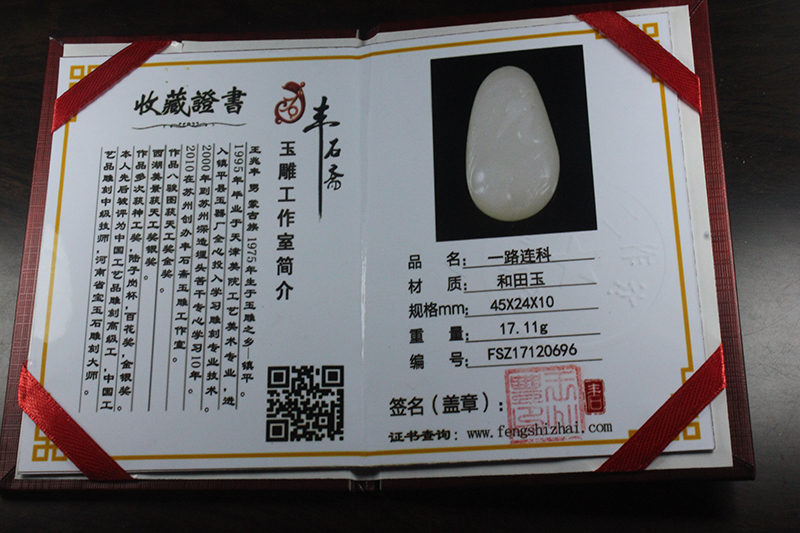 收藏證書
丰石斋
玉雕工作室简介
王兆丰 男 蒙古族 1975年生于玉雕之乡—镇平。
1995年毕业于天津美院工艺美术专业，进
入镇平县玉器厂全心投入学习雕刻专业技术。
2000年到苏州深造埋头苦干专心学习10年。
2010在苏州创办丰石斋玉雕工作室。
作品八骏图获天工奖金奖。
西湖美景获天工奖银奖。
作品多次获神工奖，陆子岗杯，百花奖，金银奖。
本人先后被评为中国工艺品雕刻高级工，中国工
艺品雕刻中级技师，河南省宝玉石雕刻大师。
品 名: 一路连科
材 质: 和田玉
规格mm: 45X24X10
重 量: 17.11g
编 号: FSZ17120696
签名（盖章）:
证书查询: www.fengshizhai.com